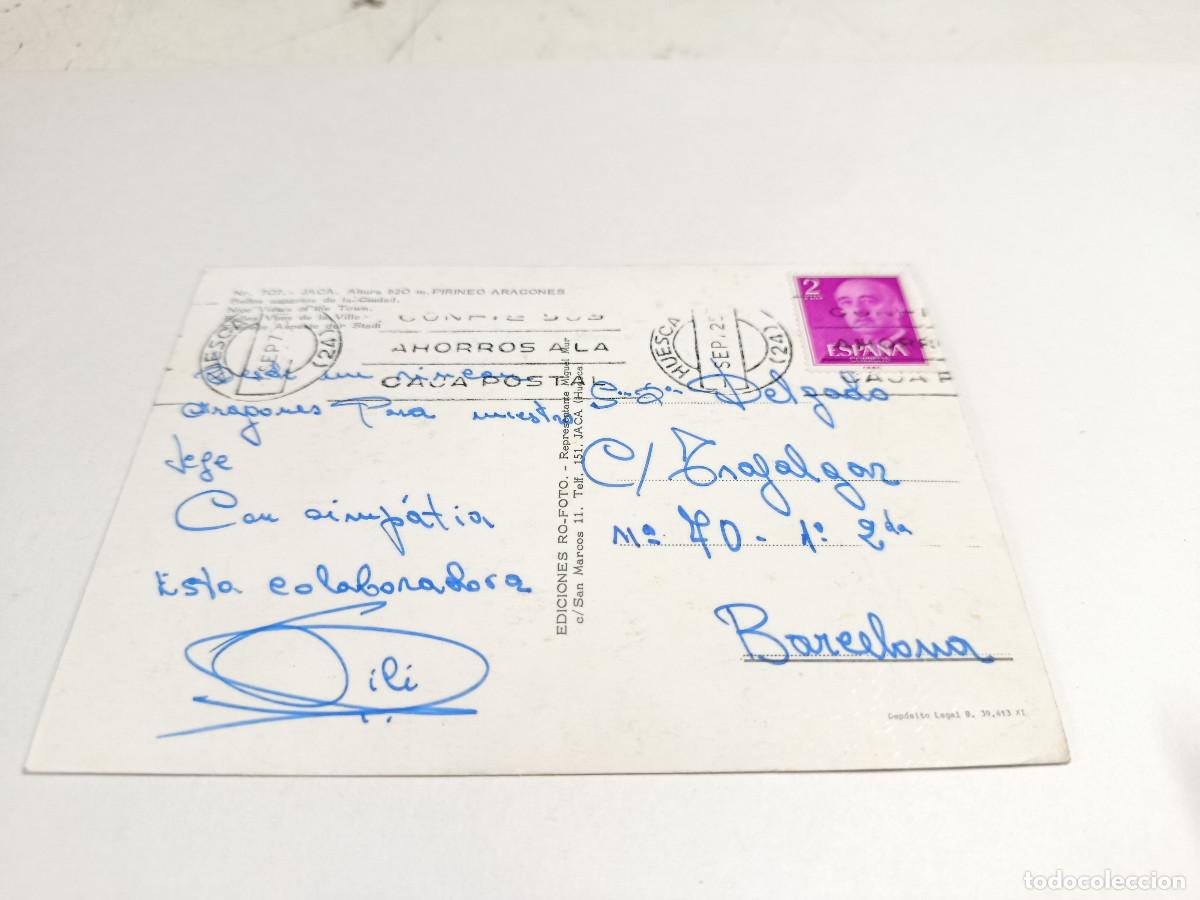 Nr. 707. - JACA. Altura 820 m. PIRINEO ARAGONES
Bellos aspectos de la Ciudad.
Nice Views of the Town.
Belles Vues de la Ville.
Aspekte der Stadt
HUESCA
SEP 7
(24)
CONFIE SUS
AHORROS A LA
CAJA POSTAL
HUESCA
SEP 29
(24)
2
ESPAÑA
AHORR
CAJA P
Desde un rincon
aragones Para nuestro
Jefe
Con simpátia
Esta colaboradora
EDICIONES RO-FOTO. - Representante Miguel Mur
c/San Marcos 11. Telf. 151. JACA (Huesca)
Delgado
C/ Trafalgar
Nº 70 - 1º 2da
Barcelona
Depósito Legal B. 39.413 XI
todocoleccion